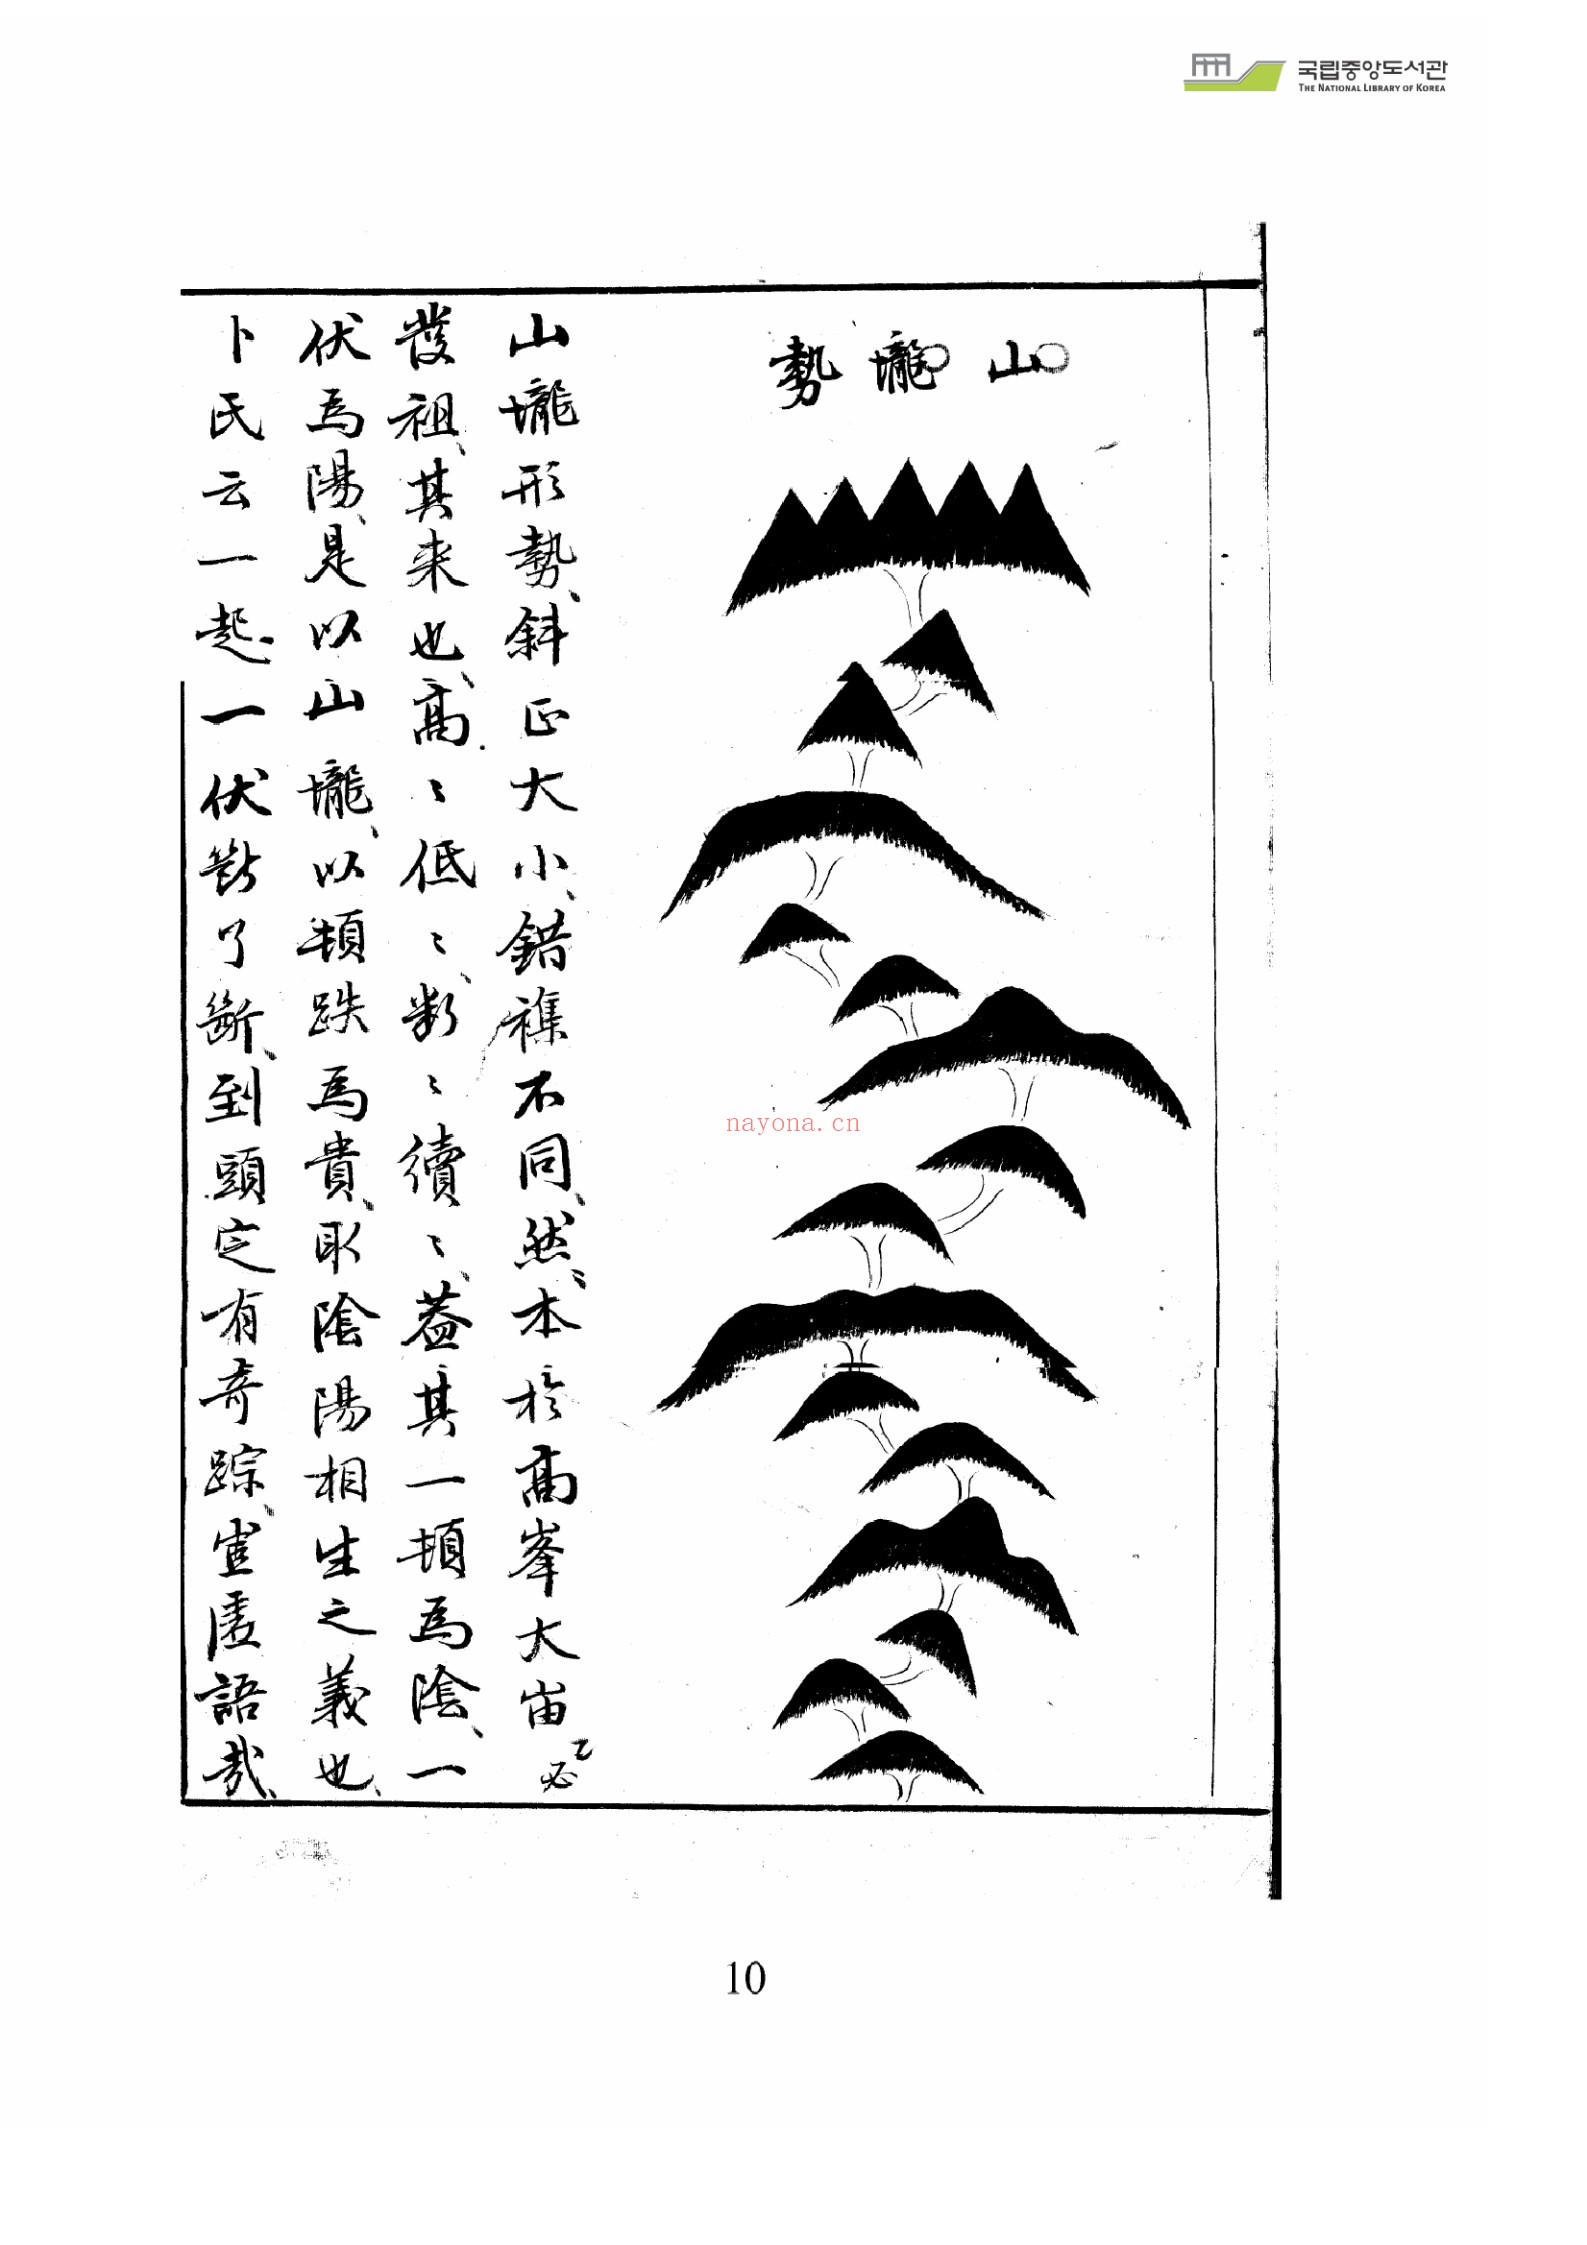 국립중앙도서관
THE NATIONAL LIBRARY OF KOREA
山壠勢
山壠形勢斜正大小錯襍不同然本於高峯大
發祖其来也高〻低〻断〻續〻盖其一頓爲陰一
伏爲陽是以山壠以頓跌爲貴取陰陽相生之義也
卜氏云一起一伏断了斷到頭定有奇踪豈虛語哉
nayona.cn
10